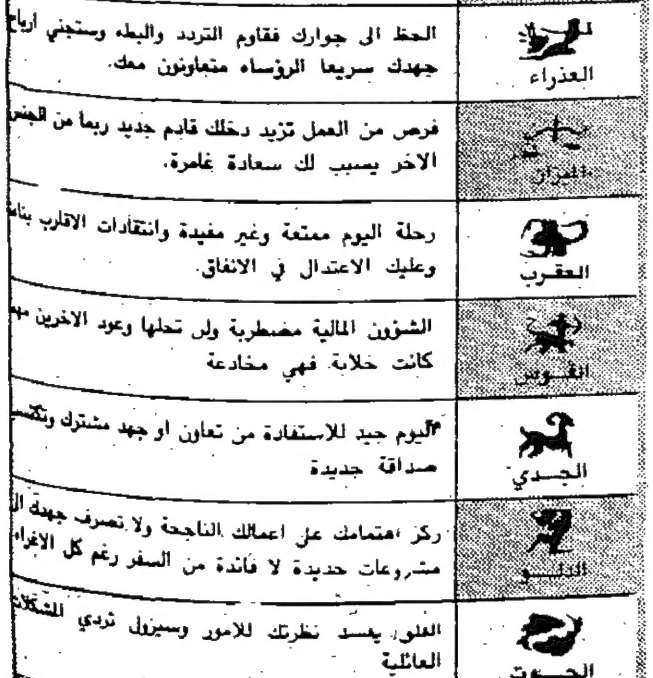 الحظ الى جوارك فقاوم التردد والبطء وستجني ارباح
جهدك سريعا الرؤساء متعاونون معك.
العذراء
فرص من العمل تزيد دخلك قادم جديد ربما من الجنس
الاخر يسبب لك سعادة غامرة.
الميزان
رحلة اليوم ممتعة وغير مفيدة وانتقادات الاقارب بناءة
وعليك الاعتدال في الانفاق.
العقرب
الشؤون المالية مضطربة ولن تحلها وعود الاخرين مهما
كانت خلابة فهي مخادعة
القوس
اليوم جيد للاستفادة من تعاون او جهد مشترك وتكتسب
صداقة جديدة
الجدي
ركز اهتمامك على اعمالك الناجحة ولا تصرف جهدك الى
مشروعات جديدة لا فائدة من السفر رغم كل الاغراء
الدلو
القلق يفسد نظرتك للامور وسيزول تردي المشكلات
العائلية
الحوت